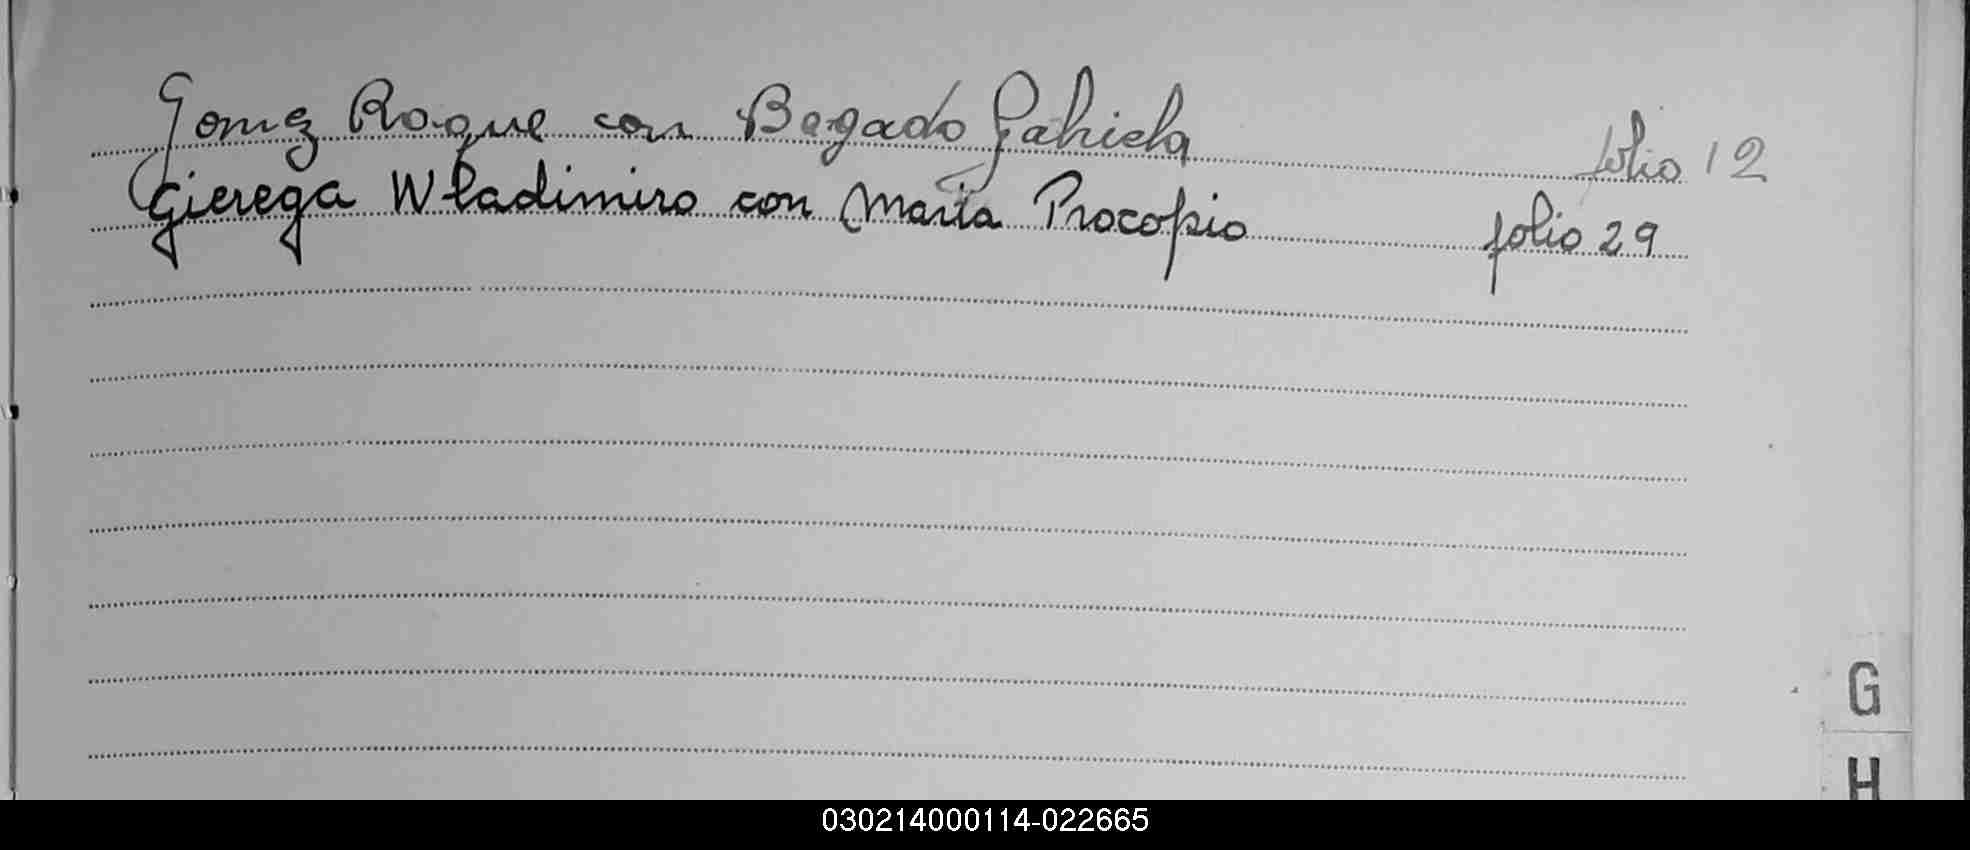 Gomez Roque con Bogado Gabriela folio 12
Gierega Wladimiro con Marta Procopio folio 29
G
H
030214000114-022665